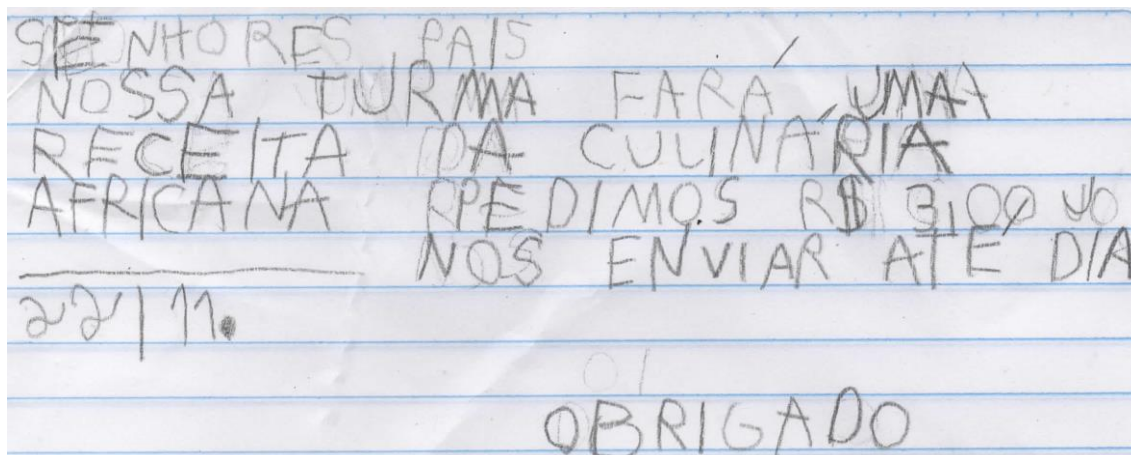 SENHORES PAIS
NOSSA TURMA FARÁ UMA
RECEITA DA CULINÁRIA
AFRICANA PEDIMOS R$ 3,00
NOS ENVIAR ATÉ DIA
22/11.
OBRIGADO